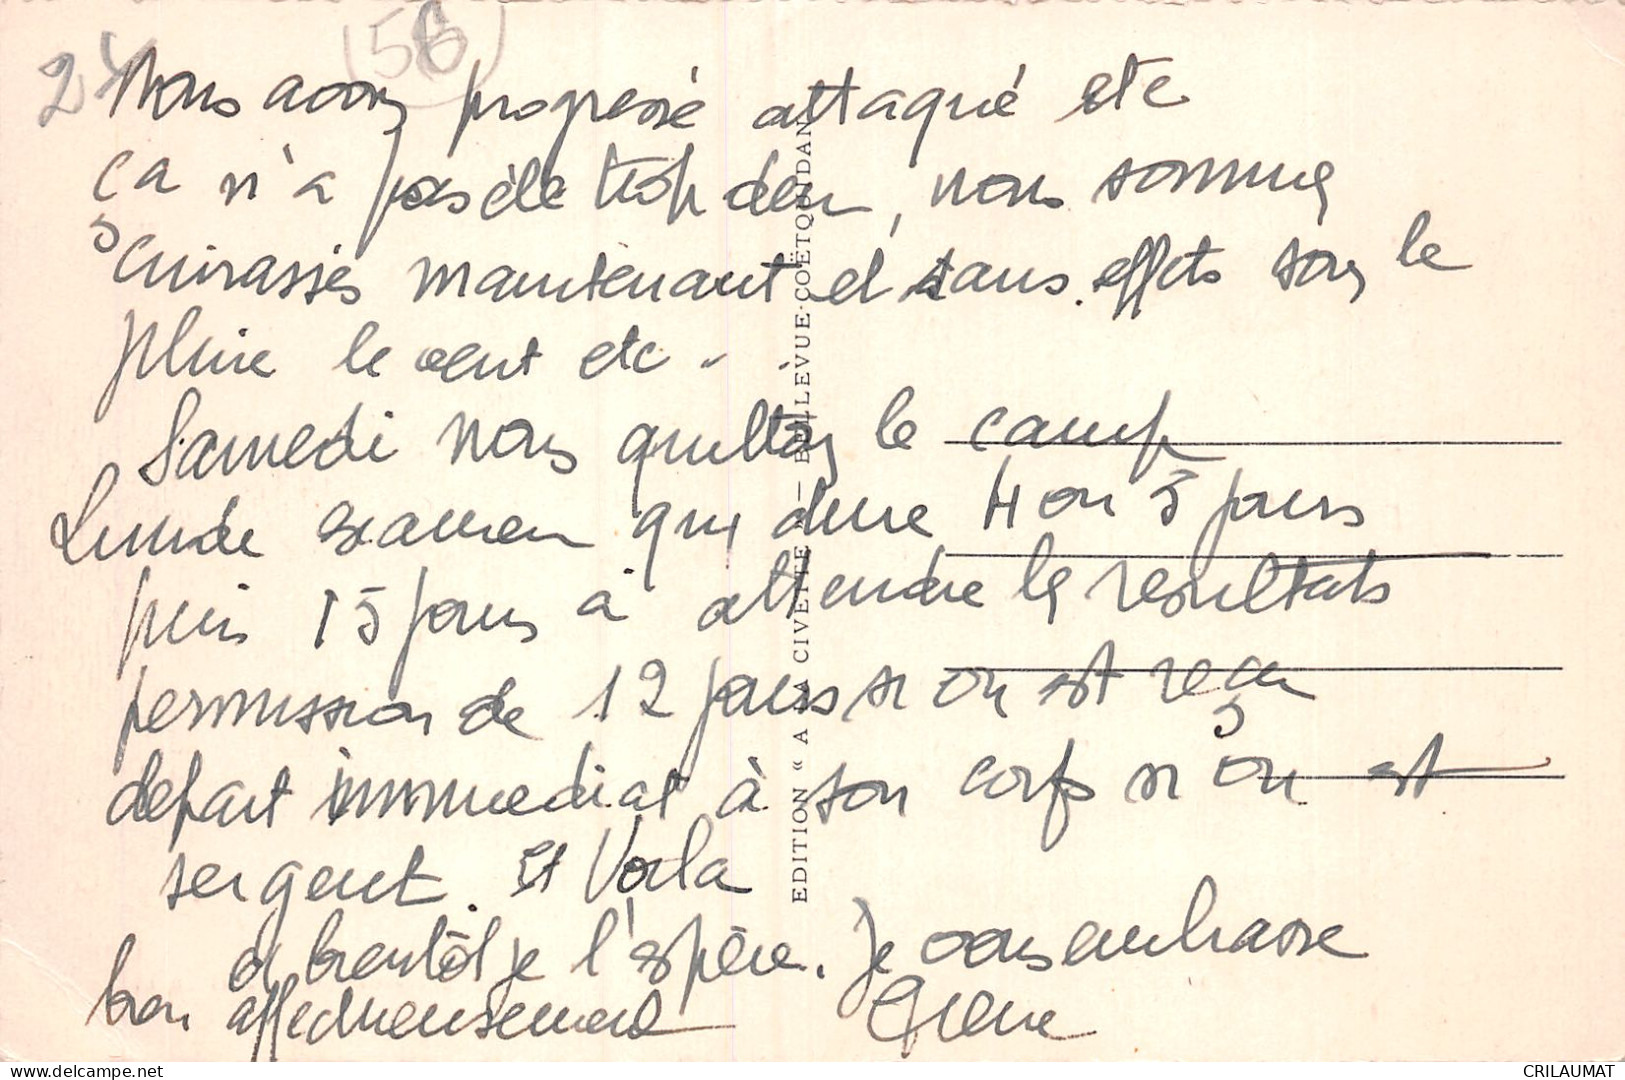 24
(56)
Nous avons progressé attaqué etc
ça n'a pas été trop dur, nous sommes
cuirassés maintenant et sans effets sous le
pluie le vent etc..
Samedi nous quittons le camp
Lundi examen qui dure 4 ou 5 jours
puis 15 jours à attendre les resultats
permission de 12 jours si on est reçu
depart immediat à son corps si on est
sergent. Et Voila
à bientôt je l'espère. Je vous embrasse
bon affectueusement
EDITION « A LA CIVETTE » — BELLEVUE-COËTQUIDAN
CRILAUMAT